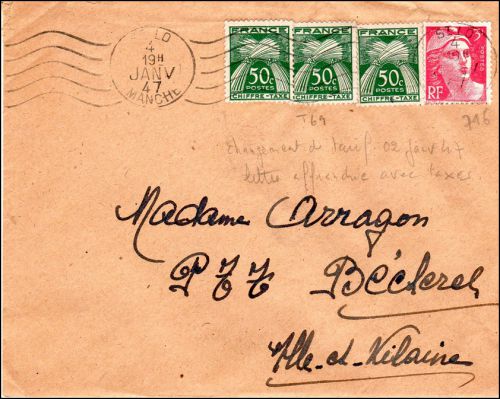 ST LO
4
19H
JANV
47
MANCHE
FRANCE
50c
POSTES
CHIFFRE-TAXE
FRANCE
50c
POSTES
CHIFFRE-TAXE
FRANCE
50c
POSTES
CHIFFRE-TAXE
RF
T69
716
Changement de tarif 02 Janv 47
lettre affranchie avec taxes.
Madame Arragon
PTT Bécherel
Ille-et-Vilaine